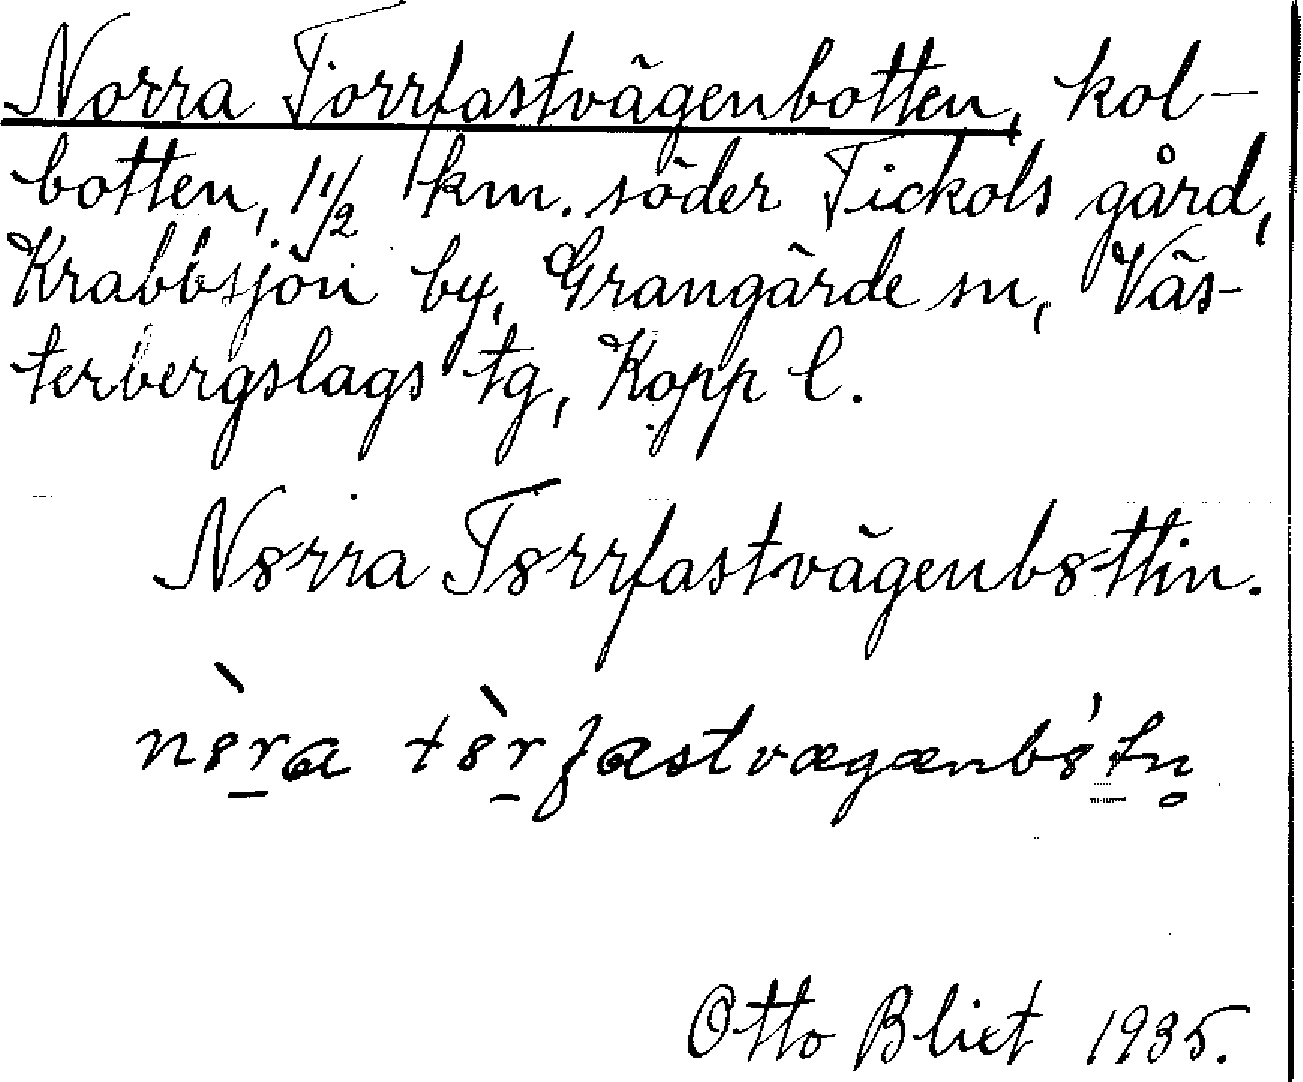 Norra Torrfastvägenbotten, kol-
botten, 1 1/2 km. söder Tickols gård,
Krabbsjön by, Grangärde sn, Väs-
terbergslags tg, Kopp l.
N8rra T8rrfastvägenb8ttin.
n8̀ra t8̀rfastvægænb8́tn̥
Otto Blixt 1935.